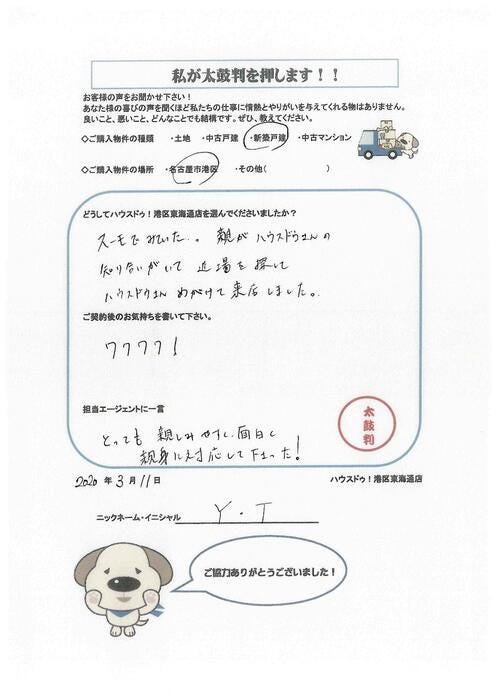 私が太鼓判を押します！！
お客様の声をお聞かせ下さい！
あなた様の喜びの声を聞くほど私たちの仕事に情熱とやりがいを与えてくれる物はありません。
良いこと、悪いこと、どんなことでも結構です。ぜひ、教えてください。
◇ご購入物件の種類 ・土地 ・中古戸建 ・新築戸建 ・中古マンション
◇ご購入物件の場所 ・名古屋市港区 ・その他( )
どうしてハウスドゥ！港区東海通店を選んでくださいましたか？
スーモでみていた。。親がハウスドゥさんの
知り合いがいて 近場を探して
ハウスドゥさん めがけて来店しました。
ご契約後のお気持ちを書いて下さい。
ワクワク！
担当エージェントに一言
とっても 親しみやすく、面白く
親身に対応して下さった！
太鼓判
2020 年 3 月 11 日
ハウスドゥ！港区東海通店
ニックネーム・イニシャル Y・T
ご協力ありがとうございました！